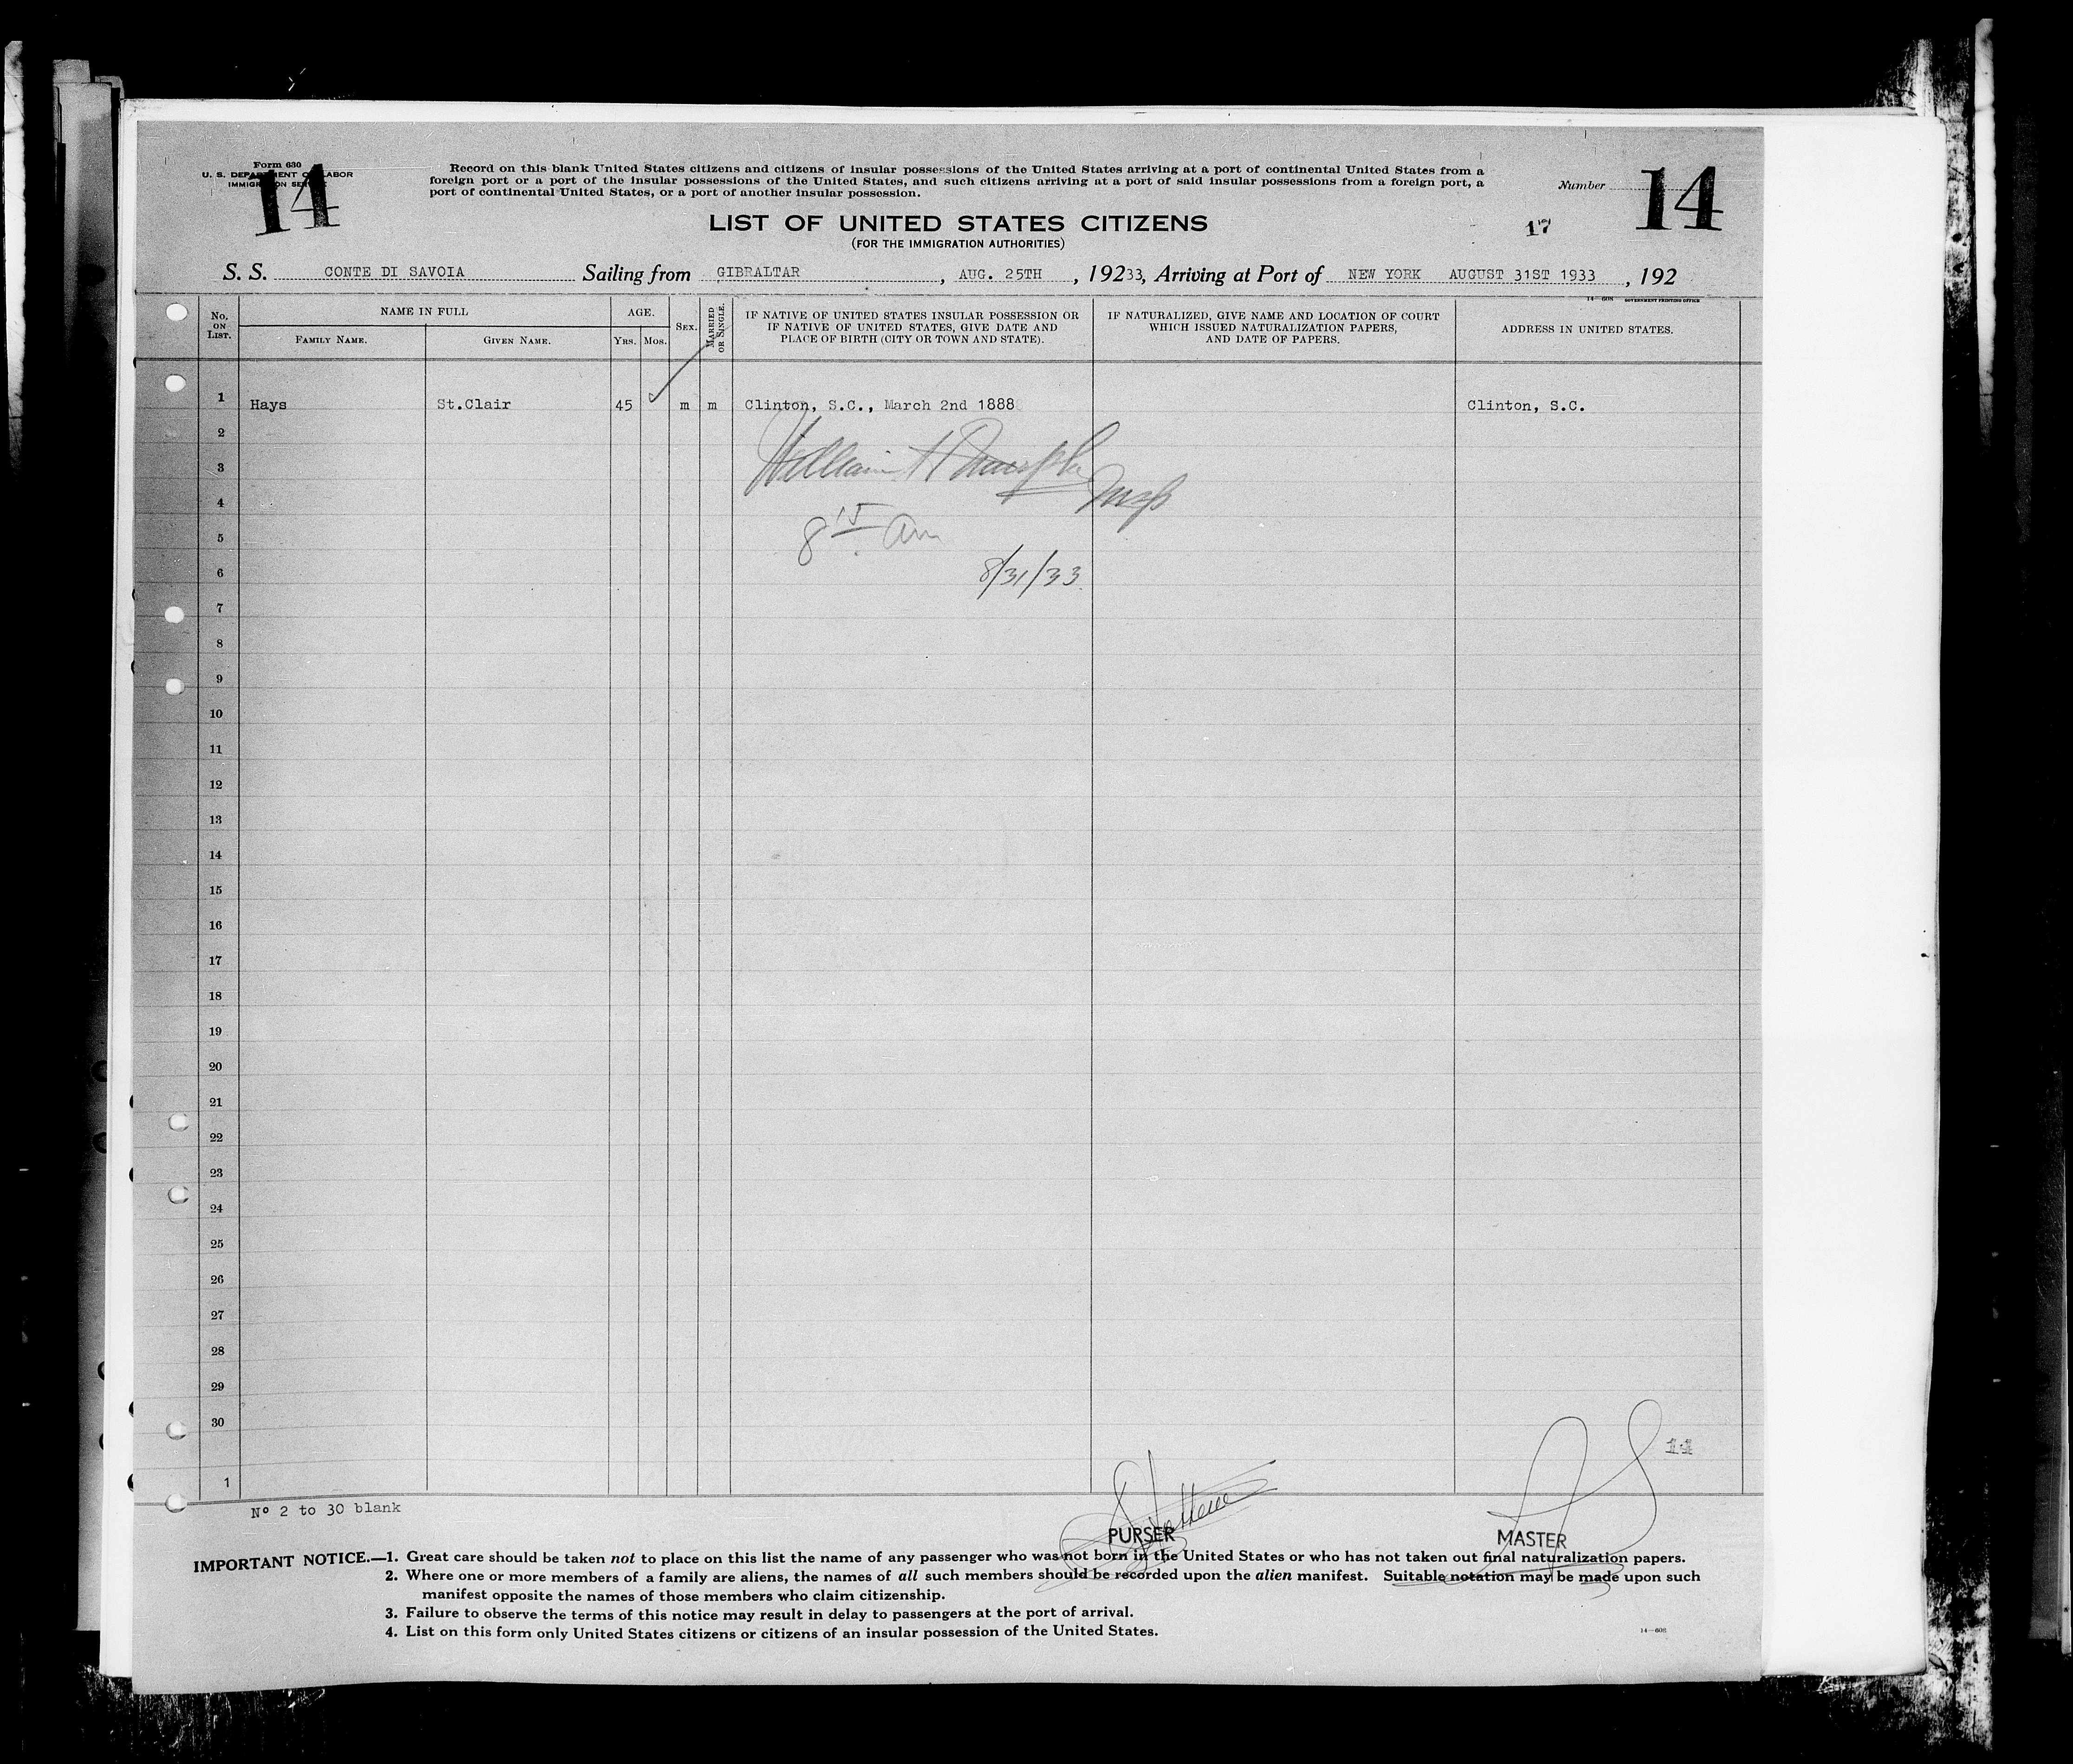 Form 630
U. S. DEPARTMENT OF LABOR
IMMIGRATION SERVICE
14
Record on this blank United States citizens and citizens of insular possessions of the United States arriving at a port of continental United States from a
foreign port or a port of the insular possessions of the United States, and such citizens arriving at a port of said insular possessions from a foreign port, a
port of continental United States, or a port of another insular possession.
Number
14
17
LIST OF UNITED STATES CITIZENS
(FOR THE IMMIGRATION AUTHORITIES)
S. S. CONTE DI SAVOIA Sailing from GIBRALTAR, AUG. 25TH, 19233, Arriving at Port of NEW YORK AUGUST 31ST 1933, 192
14—608 GOVERNMENT PRINTING OFFICE
No. ON LIST.
NAME IN FULL
FAMILY NAME.
GIVEN NAME.
AGE.
YRS. MOS.
SEX.
MARRIED OR SINGLE.
IF NATIVE OF UNITED STATES INSULAR POSSESSION OR
IF NATIVE OF UNITED STATES, GIVE DATE AND
PLACE OF BIRTH (CITY OR TOWN AND STATE).
IF NATURALIZED, GIVE NAME AND LOCATION OF COURT
WHICH ISSUED NATURALIZATION PAPERS,
AND DATE OF PAPERS.
ADDRESS IN UNITED STATES.
1 Hays St.Clair 45 m m Clinton, S.C., March 2nd 1888 Clinton, S.C.
2
William H
3
4
8 15 am
5
8/31/33
6
7
8
9
10
11
12
13
14
15
16
17
18
19
20
21
22
23
24
25
26
27
28
29
30
14
1
Nº 2 to 30 blank
PURSER
MASTER
IMPORTANT NOTICE.—1. Great care should be taken not to place on this list the name of any passenger who was not born in the United States or who has not taken out final naturalization papers.
2. Where one or more members of a family are aliens, the names of all such members should be recorded upon the alien manifest. Suitable notation may be made upon such
manifest opposite the names of those members who claim citizenship.
3. Failure to observe the terms of this notice may result in delay to passengers at the port of arrival.
4. List on this form only United States citizens or citizens of an insular possession of the United States.
14—608